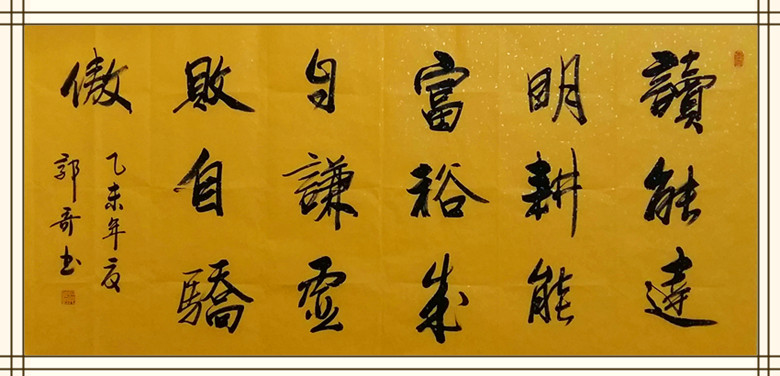 讀能達
明耕能
富裕成
自謙虛
敗自驕
傲
乙未年夏
郭奇书